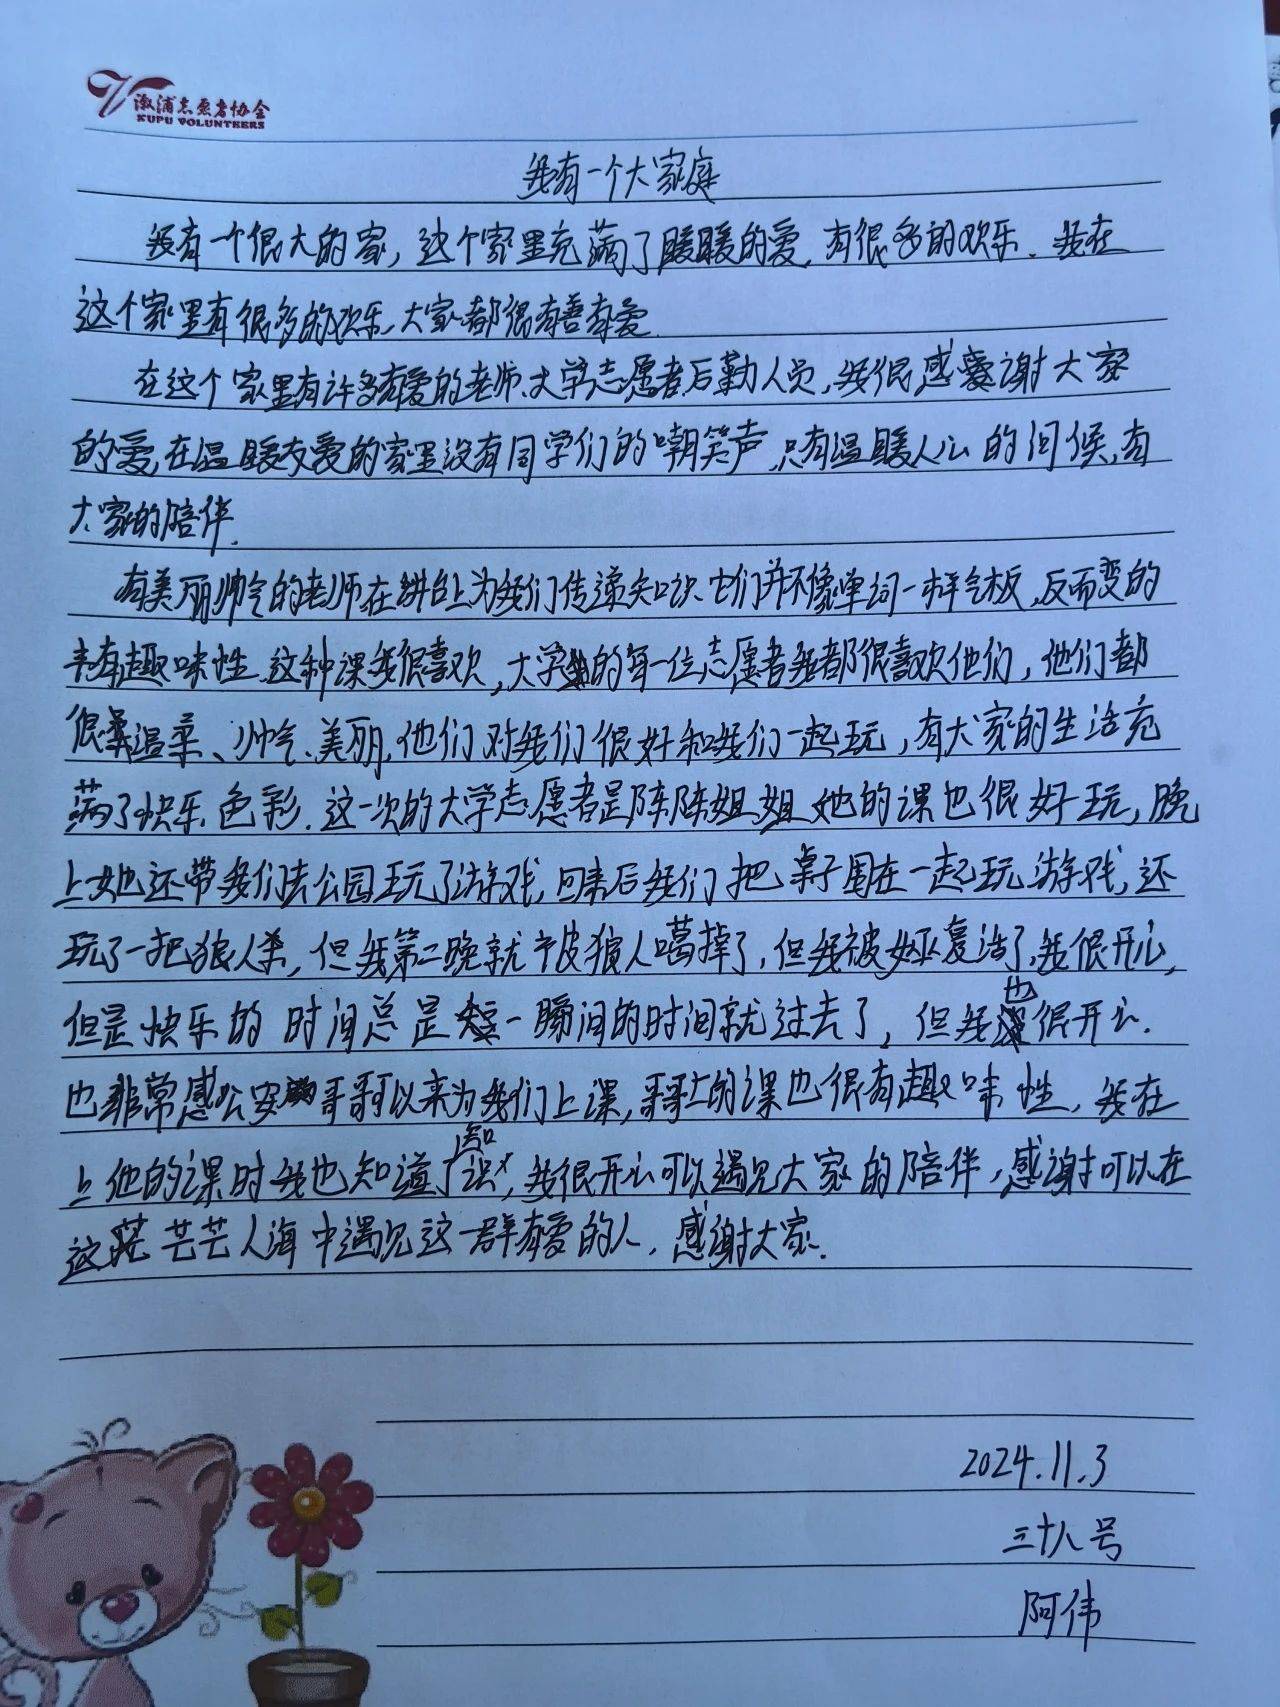 溆浦志愿者协会
XUPU VOLUNTEERS
我有一个大家庭
我有一个很大的家，这个家里充满了暖暖的爱，有很多的欢乐．我在
这个家里有很多的欢乐，大家都很有善有爱．
在这个家里有许多有爱的老师、大学志愿者、后勤人员，我很感谢大家
的爱，在温暖友爱的家里没有同学们的嘲笑声，只有温暖人心的问候，有
大家的陪伴．
有美丽帅气的老师在讲台上为我们传递知识．它们并不像单词一样气板，反而变的
丰有趣味性．这种课我很喜欢，大学的每一位志愿者我都很喜欢他们，他们都
很温柔、帅气、美丽，他们对我们很好和我们一起玩，有大家的生活充
满了快乐色彩．这一次的大学志愿者是陈陈姐姐她的课也很好玩，晚
上她还带我们去公园玩了游戏，回来后我们把桌子围在一起玩游戏，还
玩了一把狼人杀，但我第二晚就被狼人噶掉了，但我被女巫复活了，我很开心，
但是快乐的时间总是短一瞬间的时间就过去了，但我也很开心．
也非常感公安哥哥可以来为我们上课，哥哥上的课也很有趣味性，我在
上他的课时我也知道了知识，我很开心可以遇见大家的陪伴，感谢可以在
这茫芒芒人海中遇见这一群有爱的人，感谢大家．
2024.11.3
三十八号
阿伟